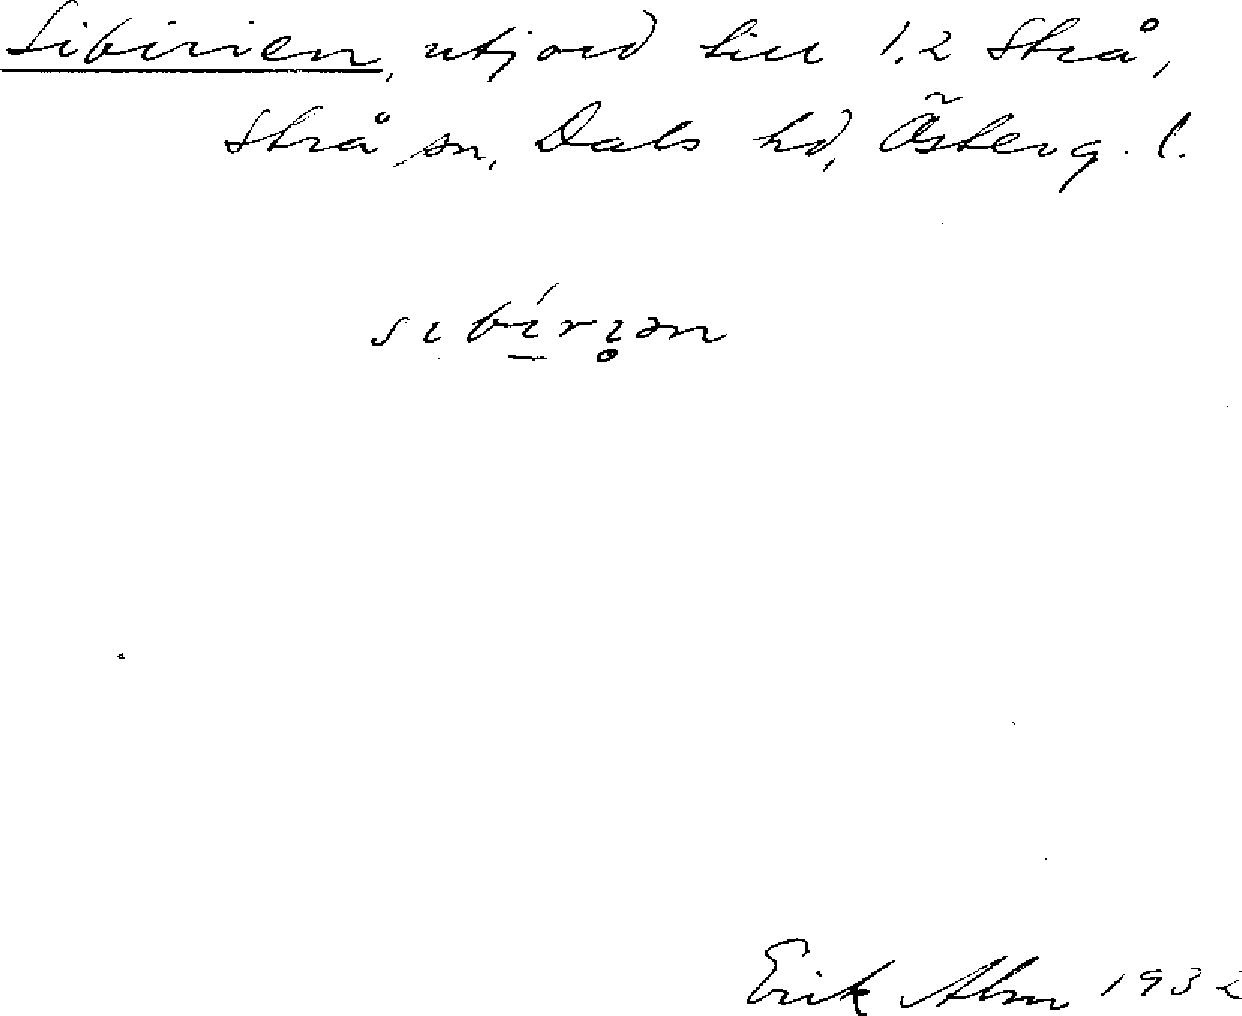 Sibirien, utjord till 1.2 Strå,
Strå sn, Dals hd, Österg. l.
sıbí̱rı̥ən
Erik Alm 1932